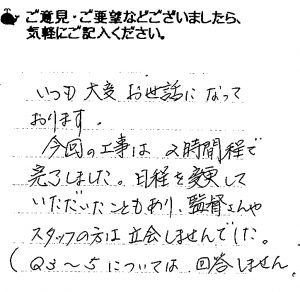 ご意見・ご要望などございましたら、
気軽にご記入ください。
いつも大変お世話になって
おります。
今回の工事は2時間程で
完了しました。日程を変更して
いただいたこともあり、監督さんや
スタッフの方は立会しませんでした。
(Q3～5については回答しません。